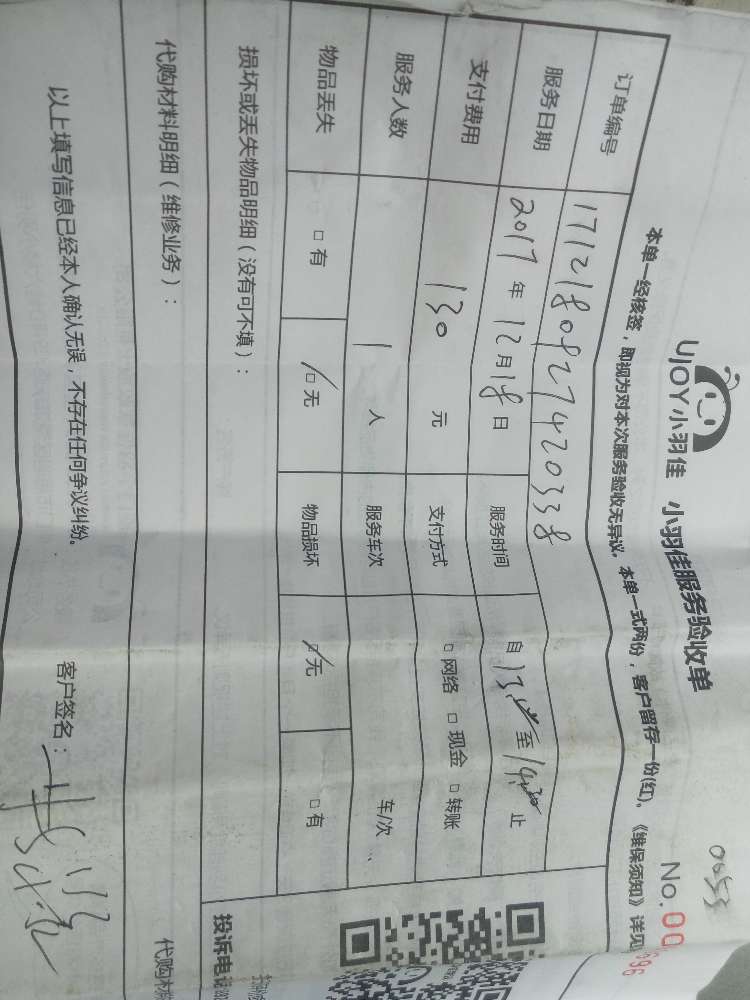 0653
UJOY小羽佳 小羽佳服务验收单 No.00
696
本单一经核签，即视为对本次服务验收无异议。本单一式两份，客户留存一份(红)。《维保须知》详见
订单编号 1712180827420338
服务日期 2017年12月18日 服务时间 自13:00至14:30止
支付费用 130元 支付方式 □网络 □现金 □转账
服务人数 1人 服务车次 车/次
物品丢失 □有 □无 物品损坏 □无 □有
损坏或丢失物品明细（没有可不填）：
投诉电话
代购材料明细（维修业务）： 代购材
以上填写信息已经本人确认无误，不存在任何争议纠纷。 客户签名：